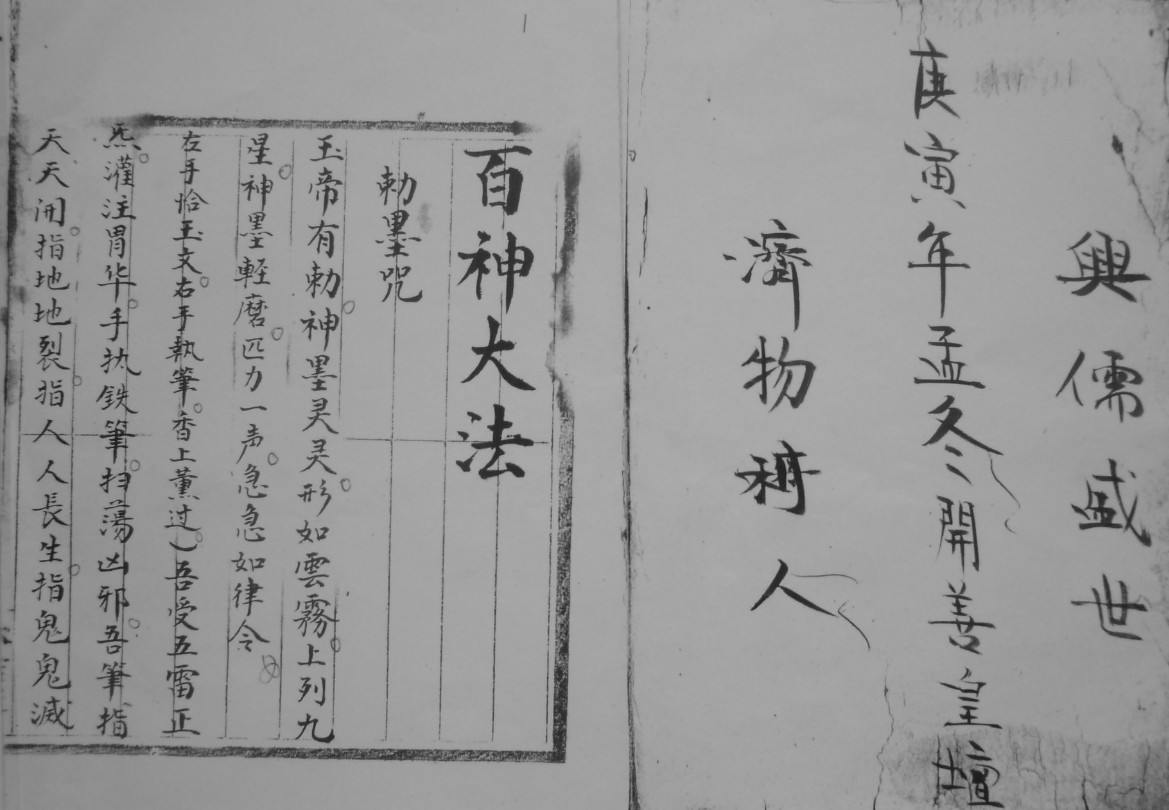 興儒盛世
庚寅年孟冬開善皇壇
濟物 人
百神大法
勅墨咒
玉帝有勅神墨灵灵形如雲霧上列九
星神墨輕磨匹力一声急急如律令
右手恰玉文右手執筆香上薰过)吾受五雷正
炁灌注胃华手执鉄筆扫蕩凶邪吾筆指
天天開指地地裂指人人長生指鬼鬼滅